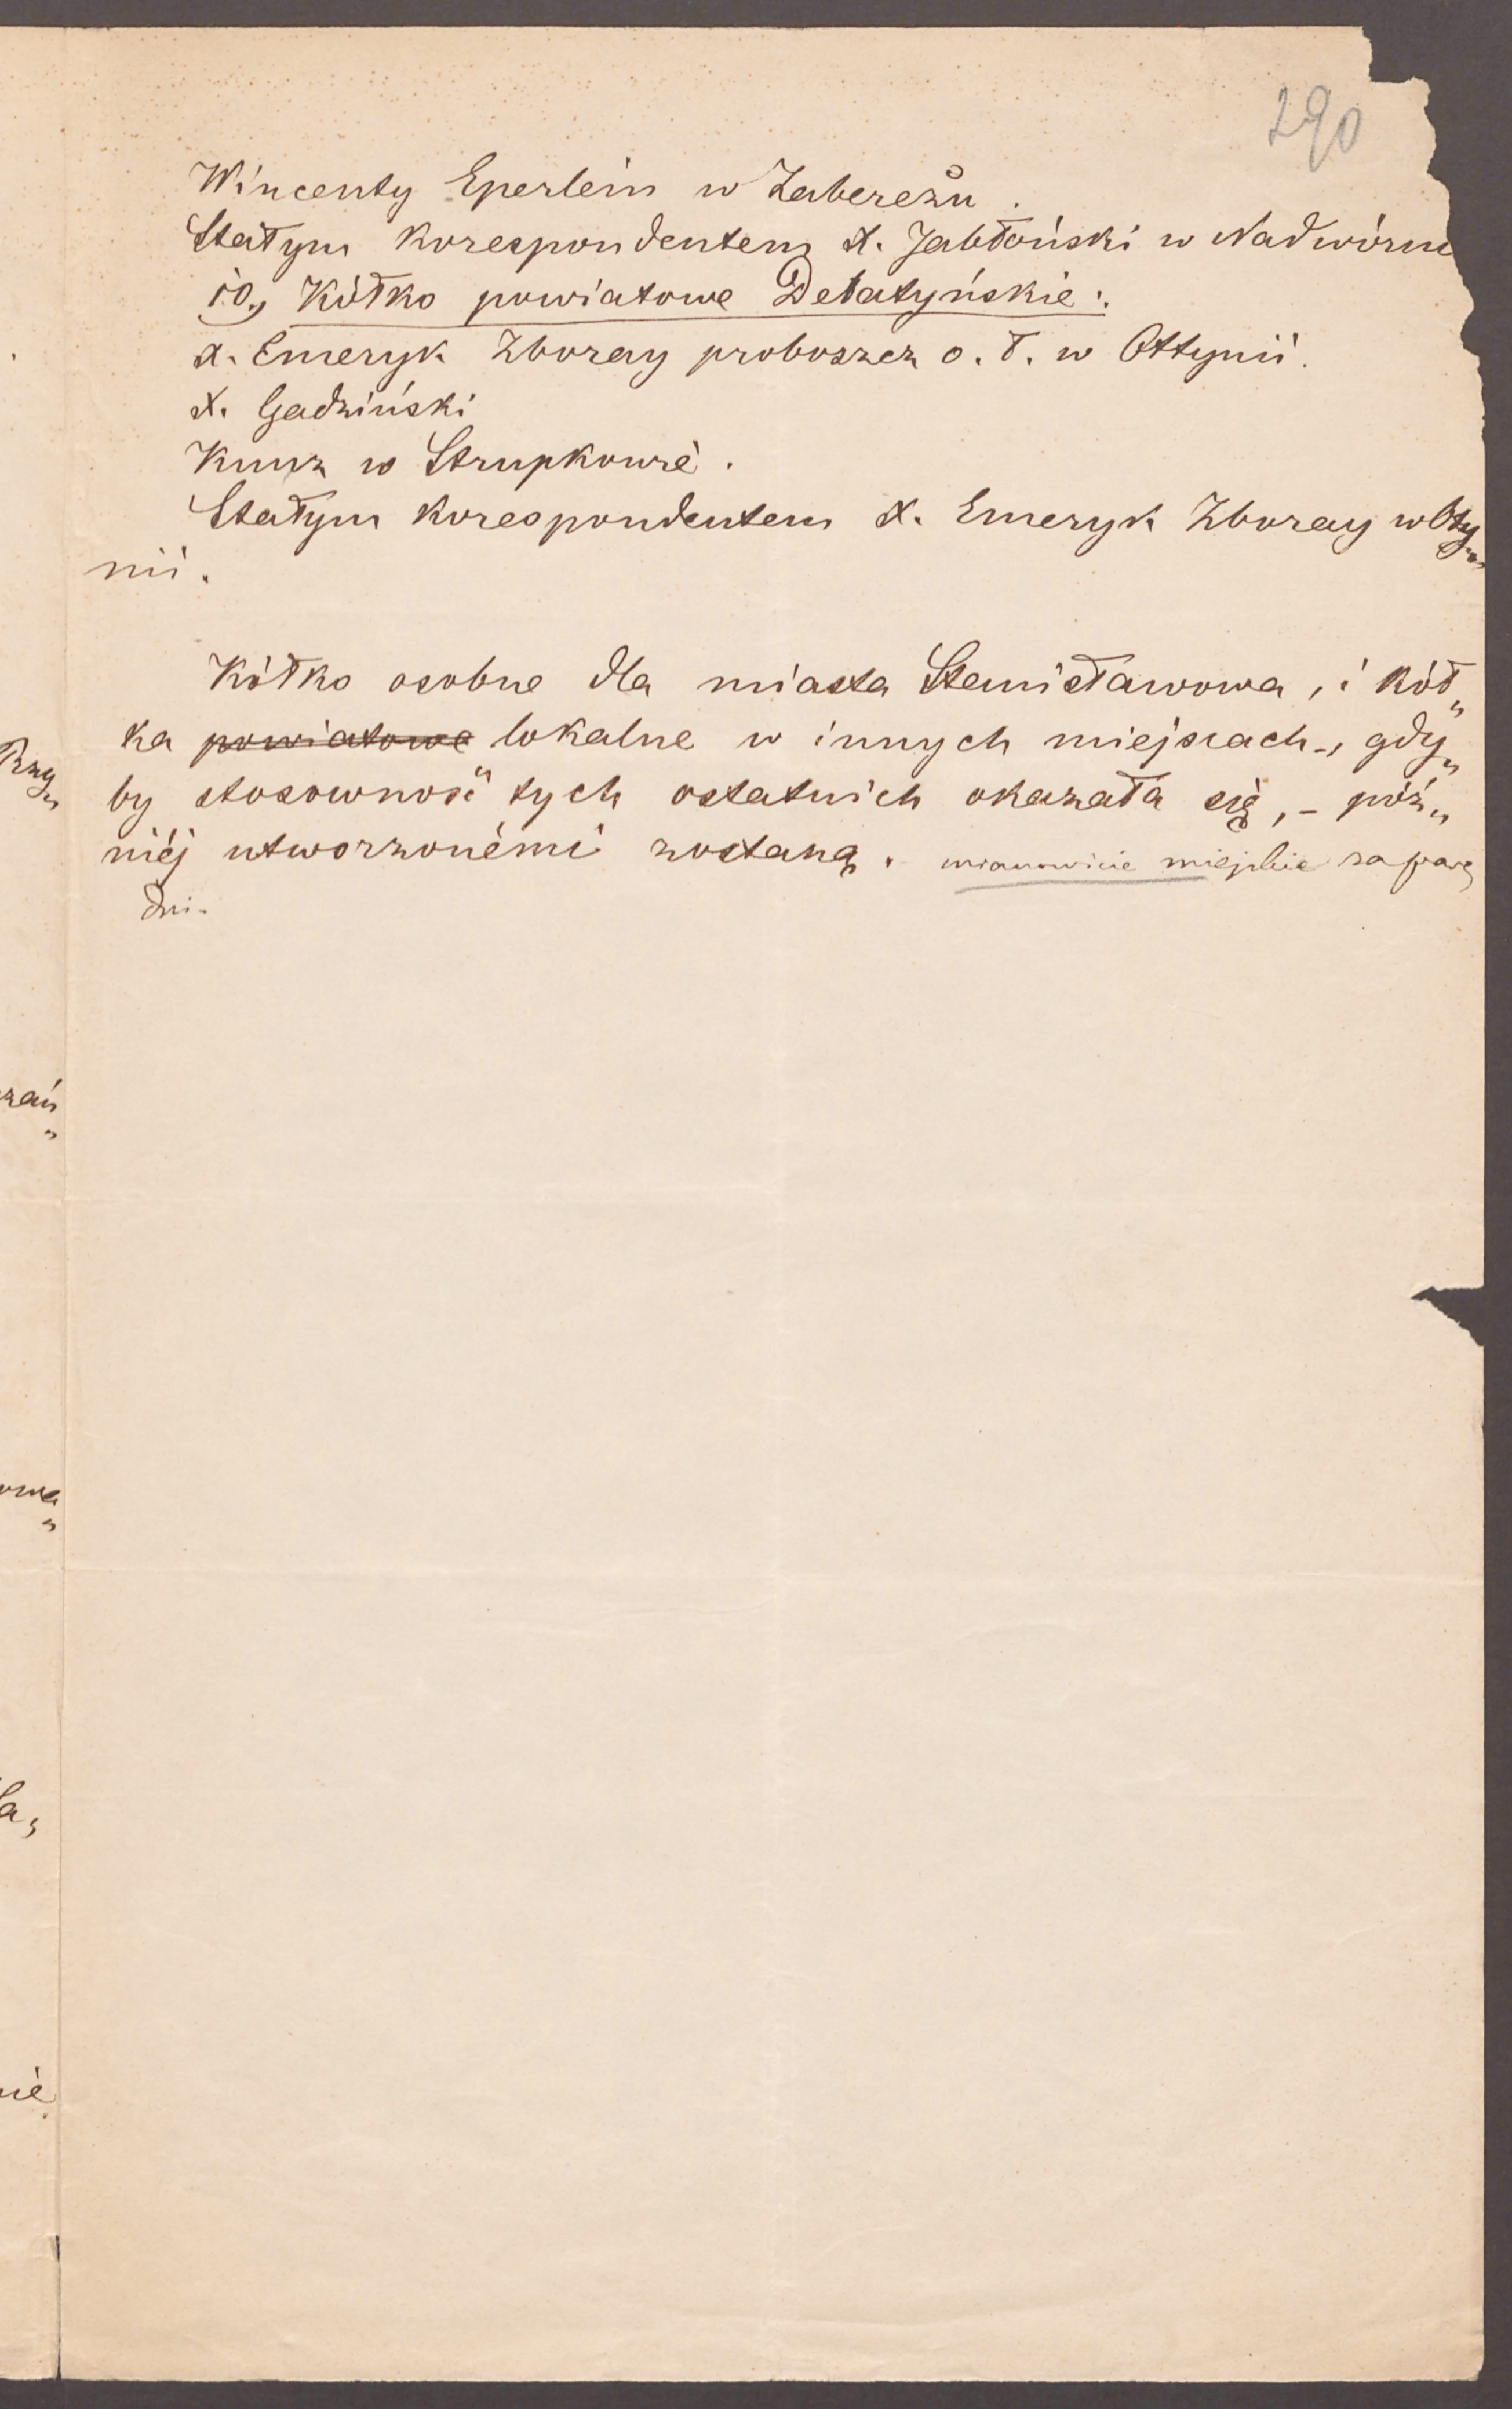 290
Wincenty Eperlein w Zabereżu.
Stałym korespondentem X. Jabłoński w Nadwórn
10, Kółko powiatowe Delatyńskie:
X. Emeryk Zboray proboszcz o. ł. w Ottynii.
X. Gadziński
Kunz w Strupkowie.
Stałym korespondentem X. Emeryk Zboray w Oty„
nii.
Kółko osobne dla miasta Stanisławowa, i kół„
ka powiatowe lokalne w innych miejscach, gdy„
by stosowność tych ostatnich okazała się, – póź„
niéj utworzonémi zostaną. mianowicie miejskie za parę
dni.
Przy„
zań„
owa„
ła,
nie